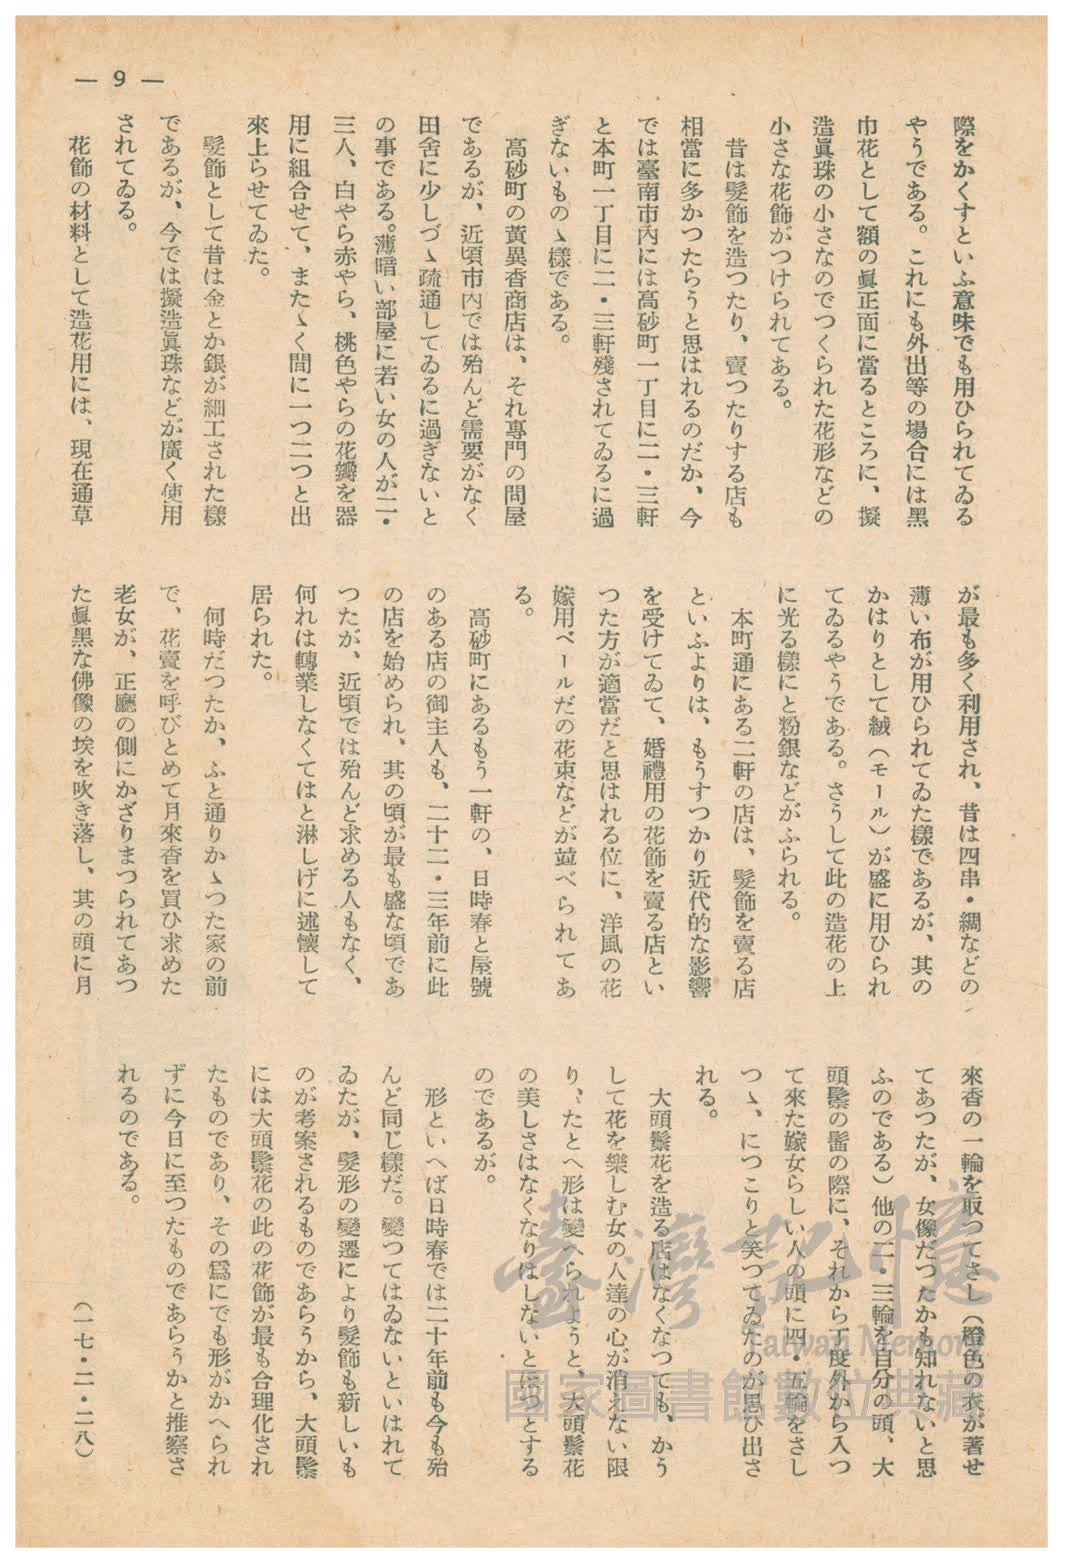 — 9 —
際をかくすといふ意味でも用ひられてゐる
やうである。これにも外出等の場合には黑
巾花として額の眞正面に當るところに、擬
造眞珠の小さなのでつくられた花形などの
小さな花飾がつけられてある。
昔は髮飾を造つたり、賣つたりする店も
相當に多かつたらうと思はれるのだか、今
では臺南市內には高砂町一丁目に二・三軒
と本町一丁目に二・三軒殘されてゐるに過
ぎないものゝ樣である。
高砂町の黃異香商店は、それ專門の問屋
であるが、近頃市內では殆んど需要がなく
田舍に少しづゝ疏通してゐるに過ぎないと
の事である。薄暗い部屋に若い女の人が二・
三人、白やら赤やら、桃色やらの花瓣を器
用に組合せて、またゝく間に一つ二つと出
來上らせてゐた。
髮飾として昔は金とか銀が細工された樣
であるが、今では擬造眞珠などが廣く使用
されてゐる。
花飾の材料として造花用には、現在通草
が最も多く利用され、昔は四串・綢などの
薄い布が用ひられてゐた樣であるが、其の
かはりとして絨（モール）が盛に用ひられ
てゐるやうである。さうして此の造花の上
に光る樣にと粉銀などがふられる。
本町通にある二軒の店は、髮飾を賣る店
といふよりは、もうすつかり近代的な影響
を受けてゐて、婚禮用の花飾を賣る店とい
つた方が適當だと思はれる位に、洋風の花
嫁用ベールだの花束などが竝べられてあ
る。
高砂町にあるもう一軒の、日時春と屋號
のある店の御主人も、二十二・三年前に此
の店を始められ、其の頃が最も盛な頃であ
つたが、近頃では殆んど求める人もなく、
何れは轉業しなくてはと淋しげに述懷して
居られた。
何時だつたか、ふと通りかゝつた家の前
で、花賣を呼びとめて月來香を買ひ求めた
老女が、正廳の側にかざりまつられてあつ
た眞黑な佛像の埃を吹き落し、其の頭に月
來香の一輪を取つてさし（橙色の衣が著せ
てあつたが、女像だつたかも知れないと思
ふのである）他の二・三輪を自分の頭、大
頭鬃の髻の際に、それから丁度外から入つ
て來た嫁女らしい人の頭に四・五輪をさし
つゝ、につこりと笑つてゐたのが思ひ出さ
れる。
大頭鬃花を造る店はなくなつても、かう
して花を樂しむ女の人達の心が消えない限
り、たとへ形は變へられようと、大頭鬃花
の美しさはなくなりはしないとほつとする
のであるが。
形といへば日時春では二十年前も今も殆
んど同じ樣だ。變つてはゐないといはれて
ゐたが、髮形の變遷により髮飾も新しいも
のが考案されるものであらうから、大頭鬃
には大頭鬃花の此の花飾が最も合理化され
たものであり、その爲にでも形がかへられ
ずに今日に至つたものであらうかと推察さ
れるのである。
（一七・二・二八）
臺灣記憶
Taiwan Memory
國家圖書館數位典藏